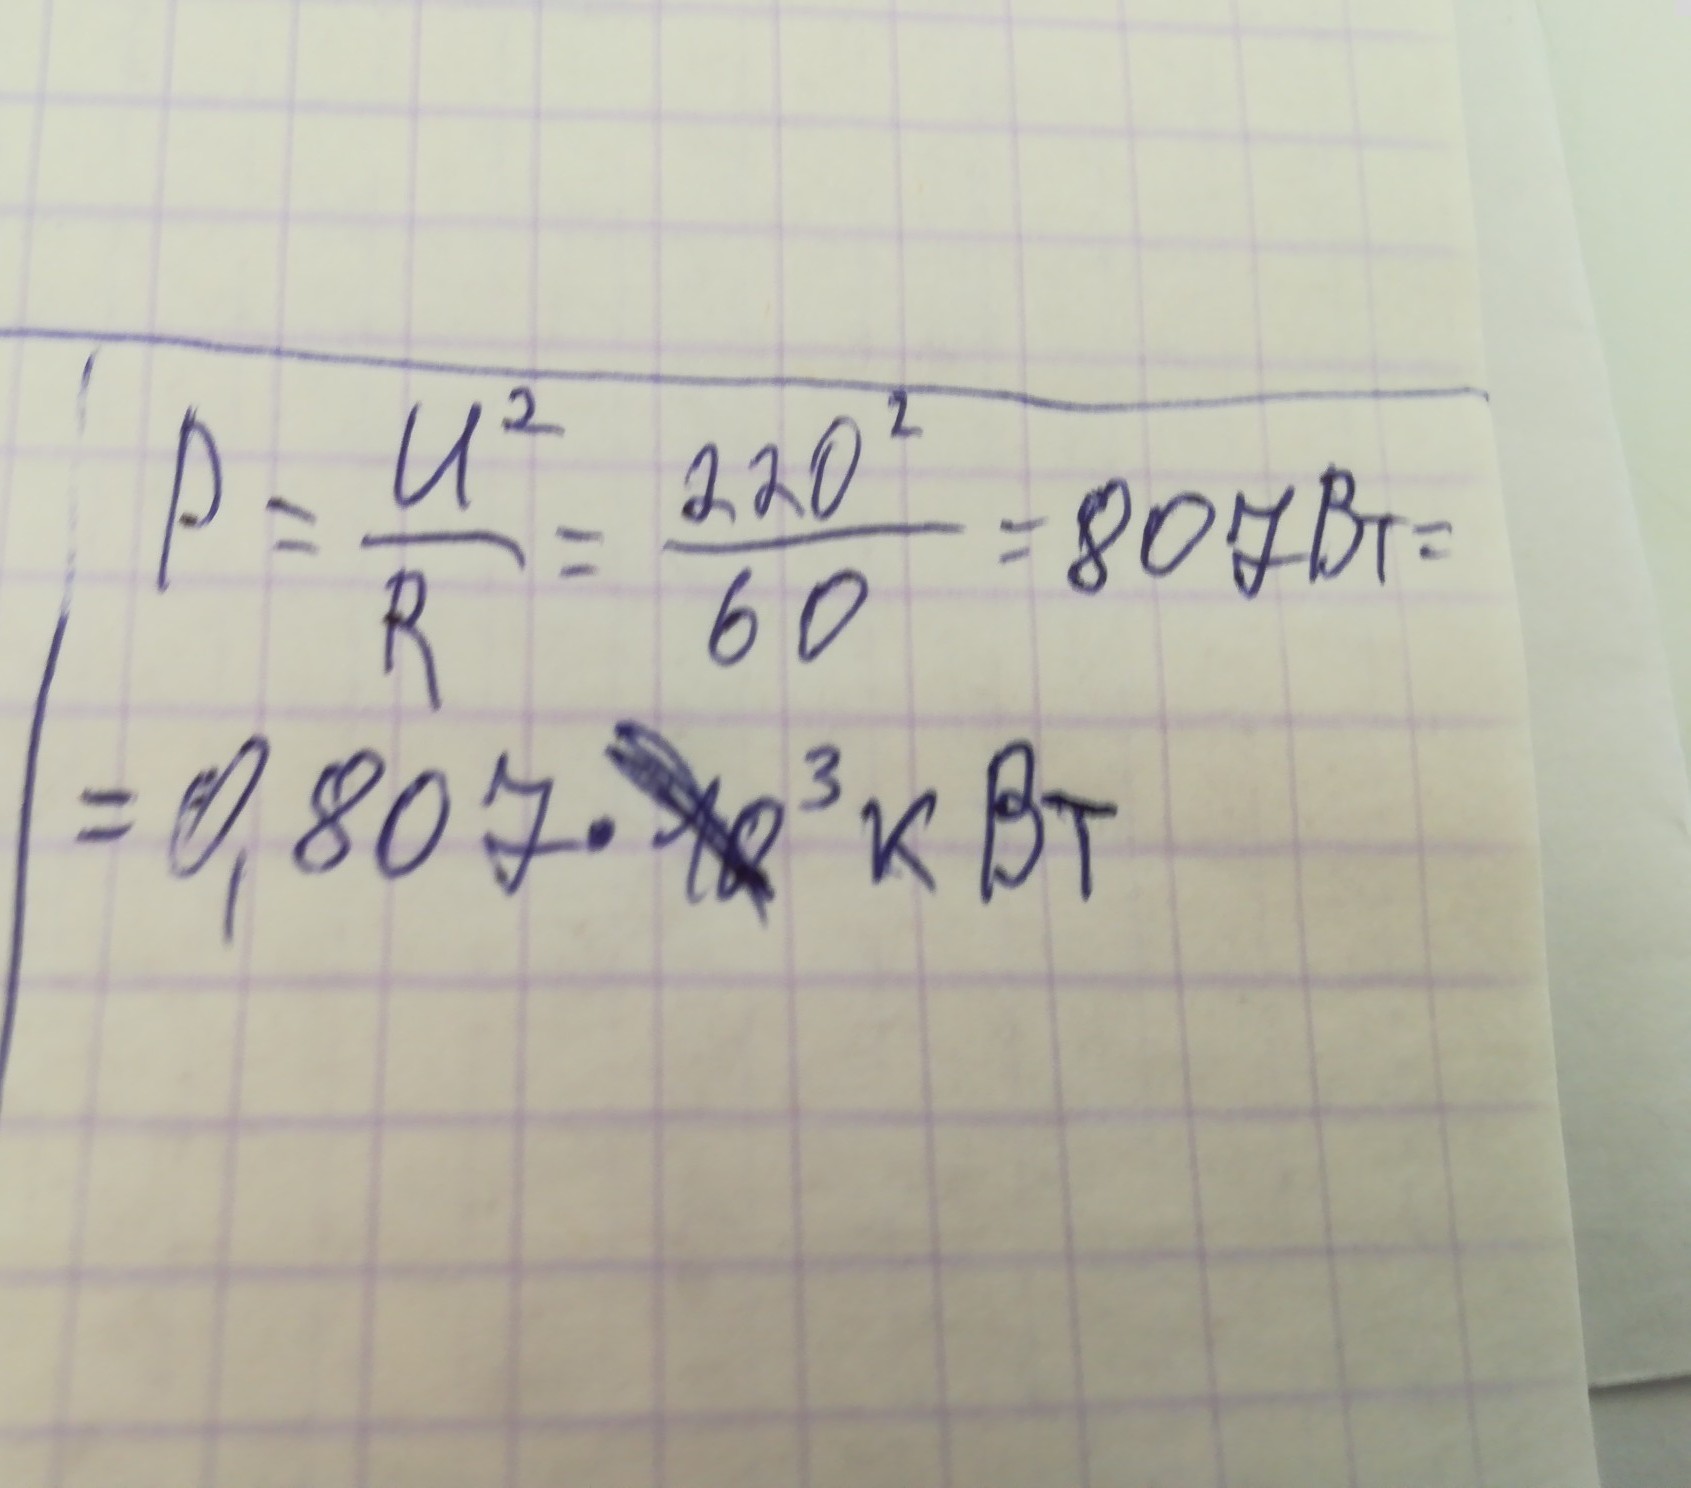 P = U² / R = 220² / 60 = 807 Вт =
= 0,807 · 10³ кВт